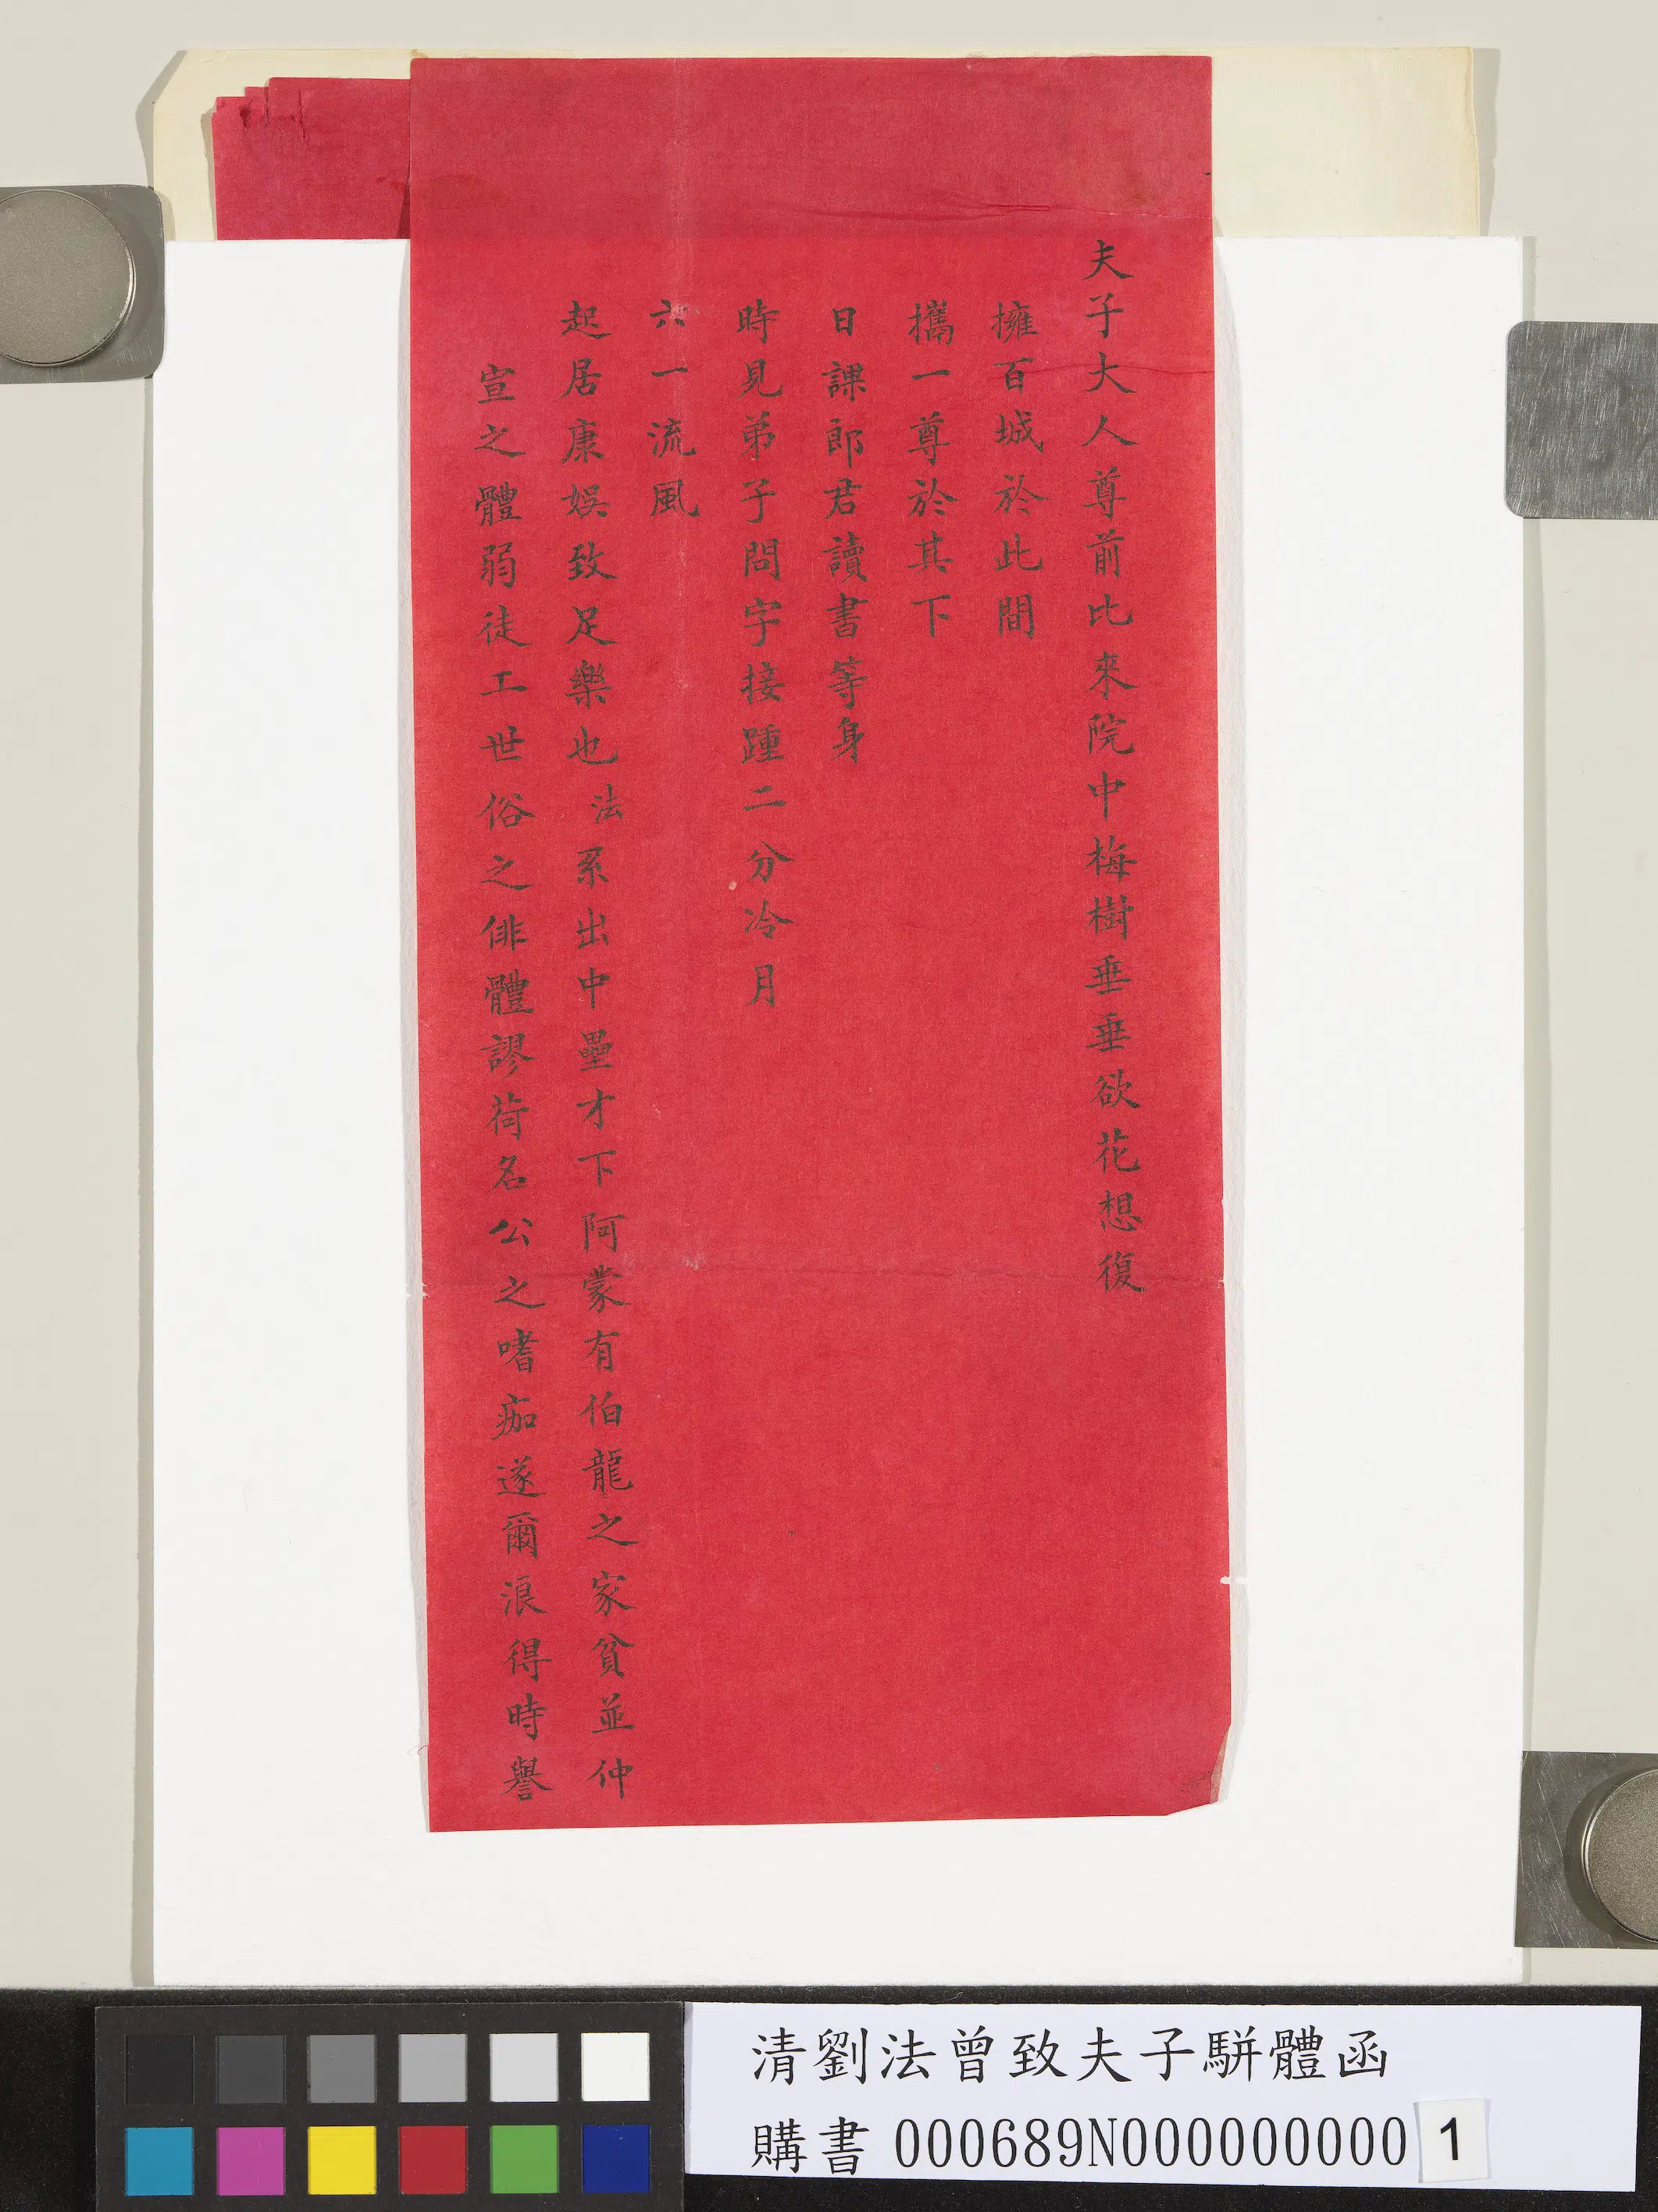 夫子大人尊前比來院中梅樹垂垂欲花想復
擁百城於此間
攜一尊於其下
日課郎君讀書等身
時見弟子問字接踵二分冷月
六一流風
起居康娛致足樂也法系出中壘才下阿蒙有伯龍之家貧並仲
宣之體弱徒工世俗之俳體謬荷名公之嗜痂遂爾浪得時譽
清劉法曾致夫子駢體函
購書000689N000000000 1